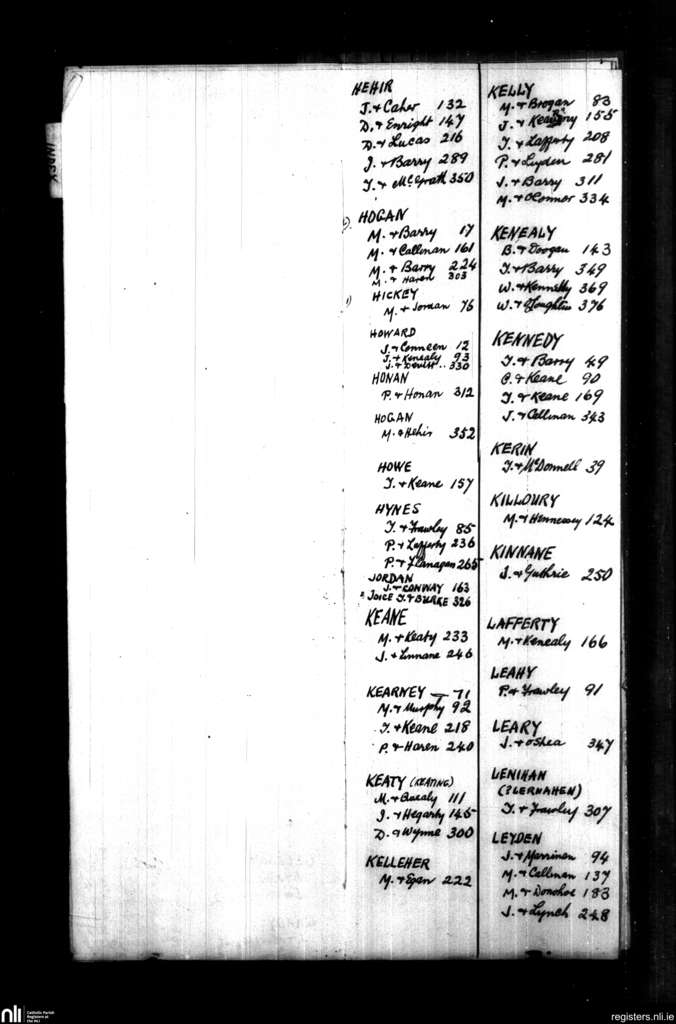 INDEX
HEHIR
J. + Caher 132
D. + Enright 147
D. + Lucas 216
J. + Barry 289
T. + McGrath 350
HOGAN
M. + Barry 17
M. + Callinan 161
M. + Barry 224
M. + Haren 303
HICKEY
M. + Jordan 76
HOWARD
J. + Conneen 12
J. + Kenealy 93
J. + Devitt .. 330
HONAN
P. + Honan 312
HOGAN
M. + Hehir 352
HOWE
T. + Keane 157
HYNES
T. + Frawley 85
P. + Lafferty 236
P. + Flanagan 265
JORDAN
J. + CONWAY 163
JOICE T. + BURKE 326
KEANE
M. + Keaty 233
J. + Linnane 246
KEARNEY — 71
M. + Murphy 92
T. + Keane 218
P. + Haren 240
KEATY (KEATING)
M. + 111
J. + Hegarty 145
D. + Wynne 300
KELLEHER
M. + Egan 222
KELLY
M. + Brogan 83
J. + 155
T. + Lafferty 208
P. + Leyden 281
J. + Barry 311
M. + O'Connor 334
KENEALY
B. + Doogan 143
T. + Barry 349
W. + Kennelly 369
W. + 376
KENNEDY
T. + Barry 49
C. + Keane 90
T. + Keane 169
J. + Callinan 343
KERIN
T. + McDonnell 39
KILLOURY
M. + Hennessey 124
KINNANE
J. + Guthrie 250
LAFFERTY
M. + Kenealy 166
LEAHY
P. + Frawley 91
LEARY
J. + O'Shea 347
LENIHAN
(?LERNAHEN)
T. + Frawley 307
LEYDEN
J. + Marrinan 94
M. + Callinan 137
M. + Donohoe 183
J. + Lynch 248
nli
Catholic Parish
Registers at
the NLI
registers.nli.ie